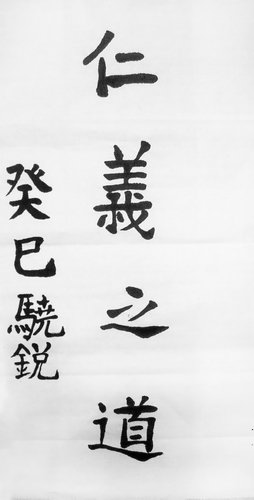 仁義之道
癸巳驍鋭